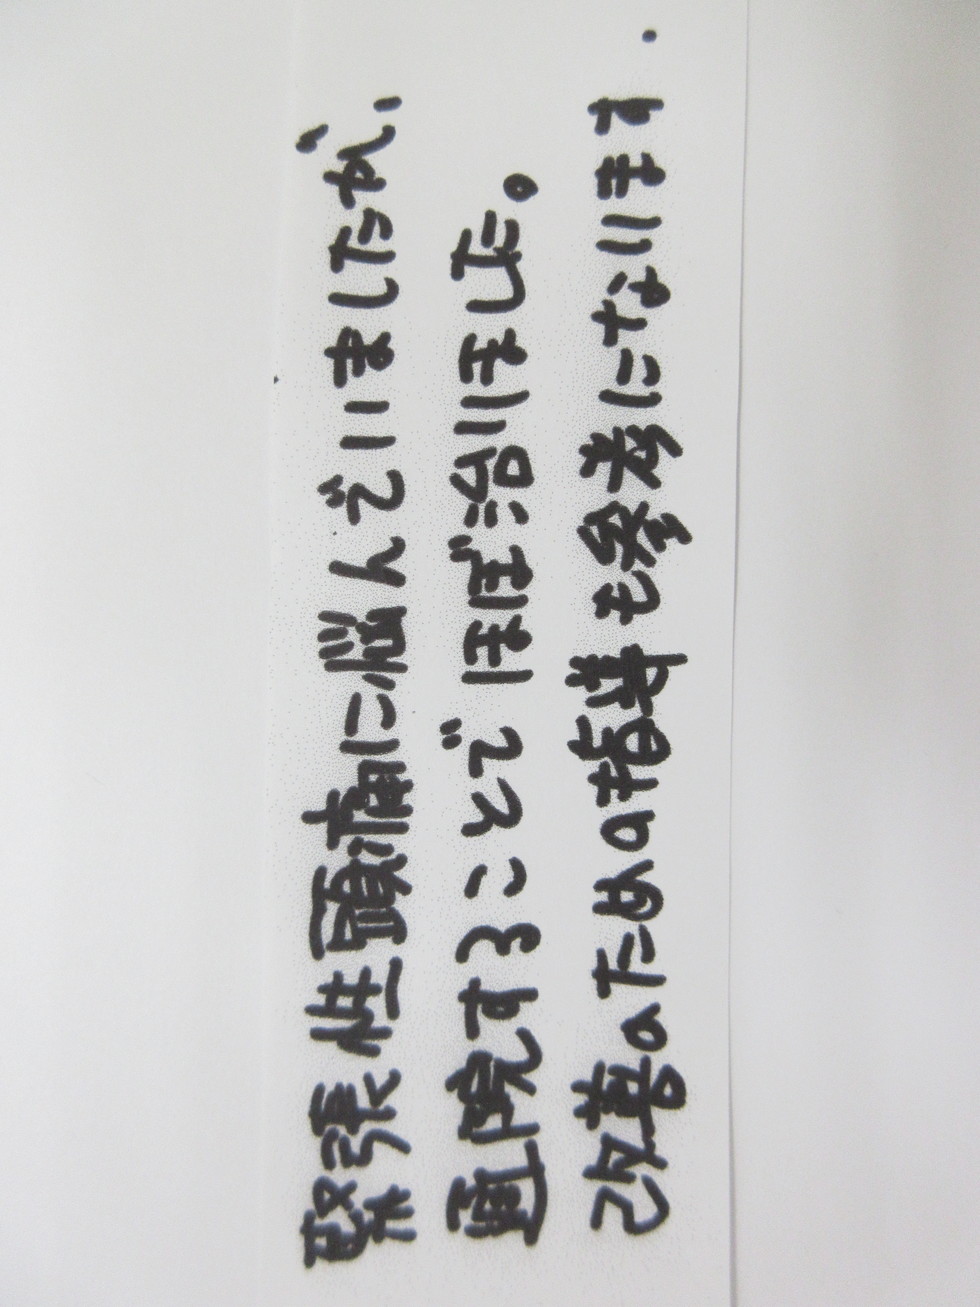 緊張性頭痛に悩んでいましたが、
通院することでほぼ治りました。
改善のための指導も参考になります.